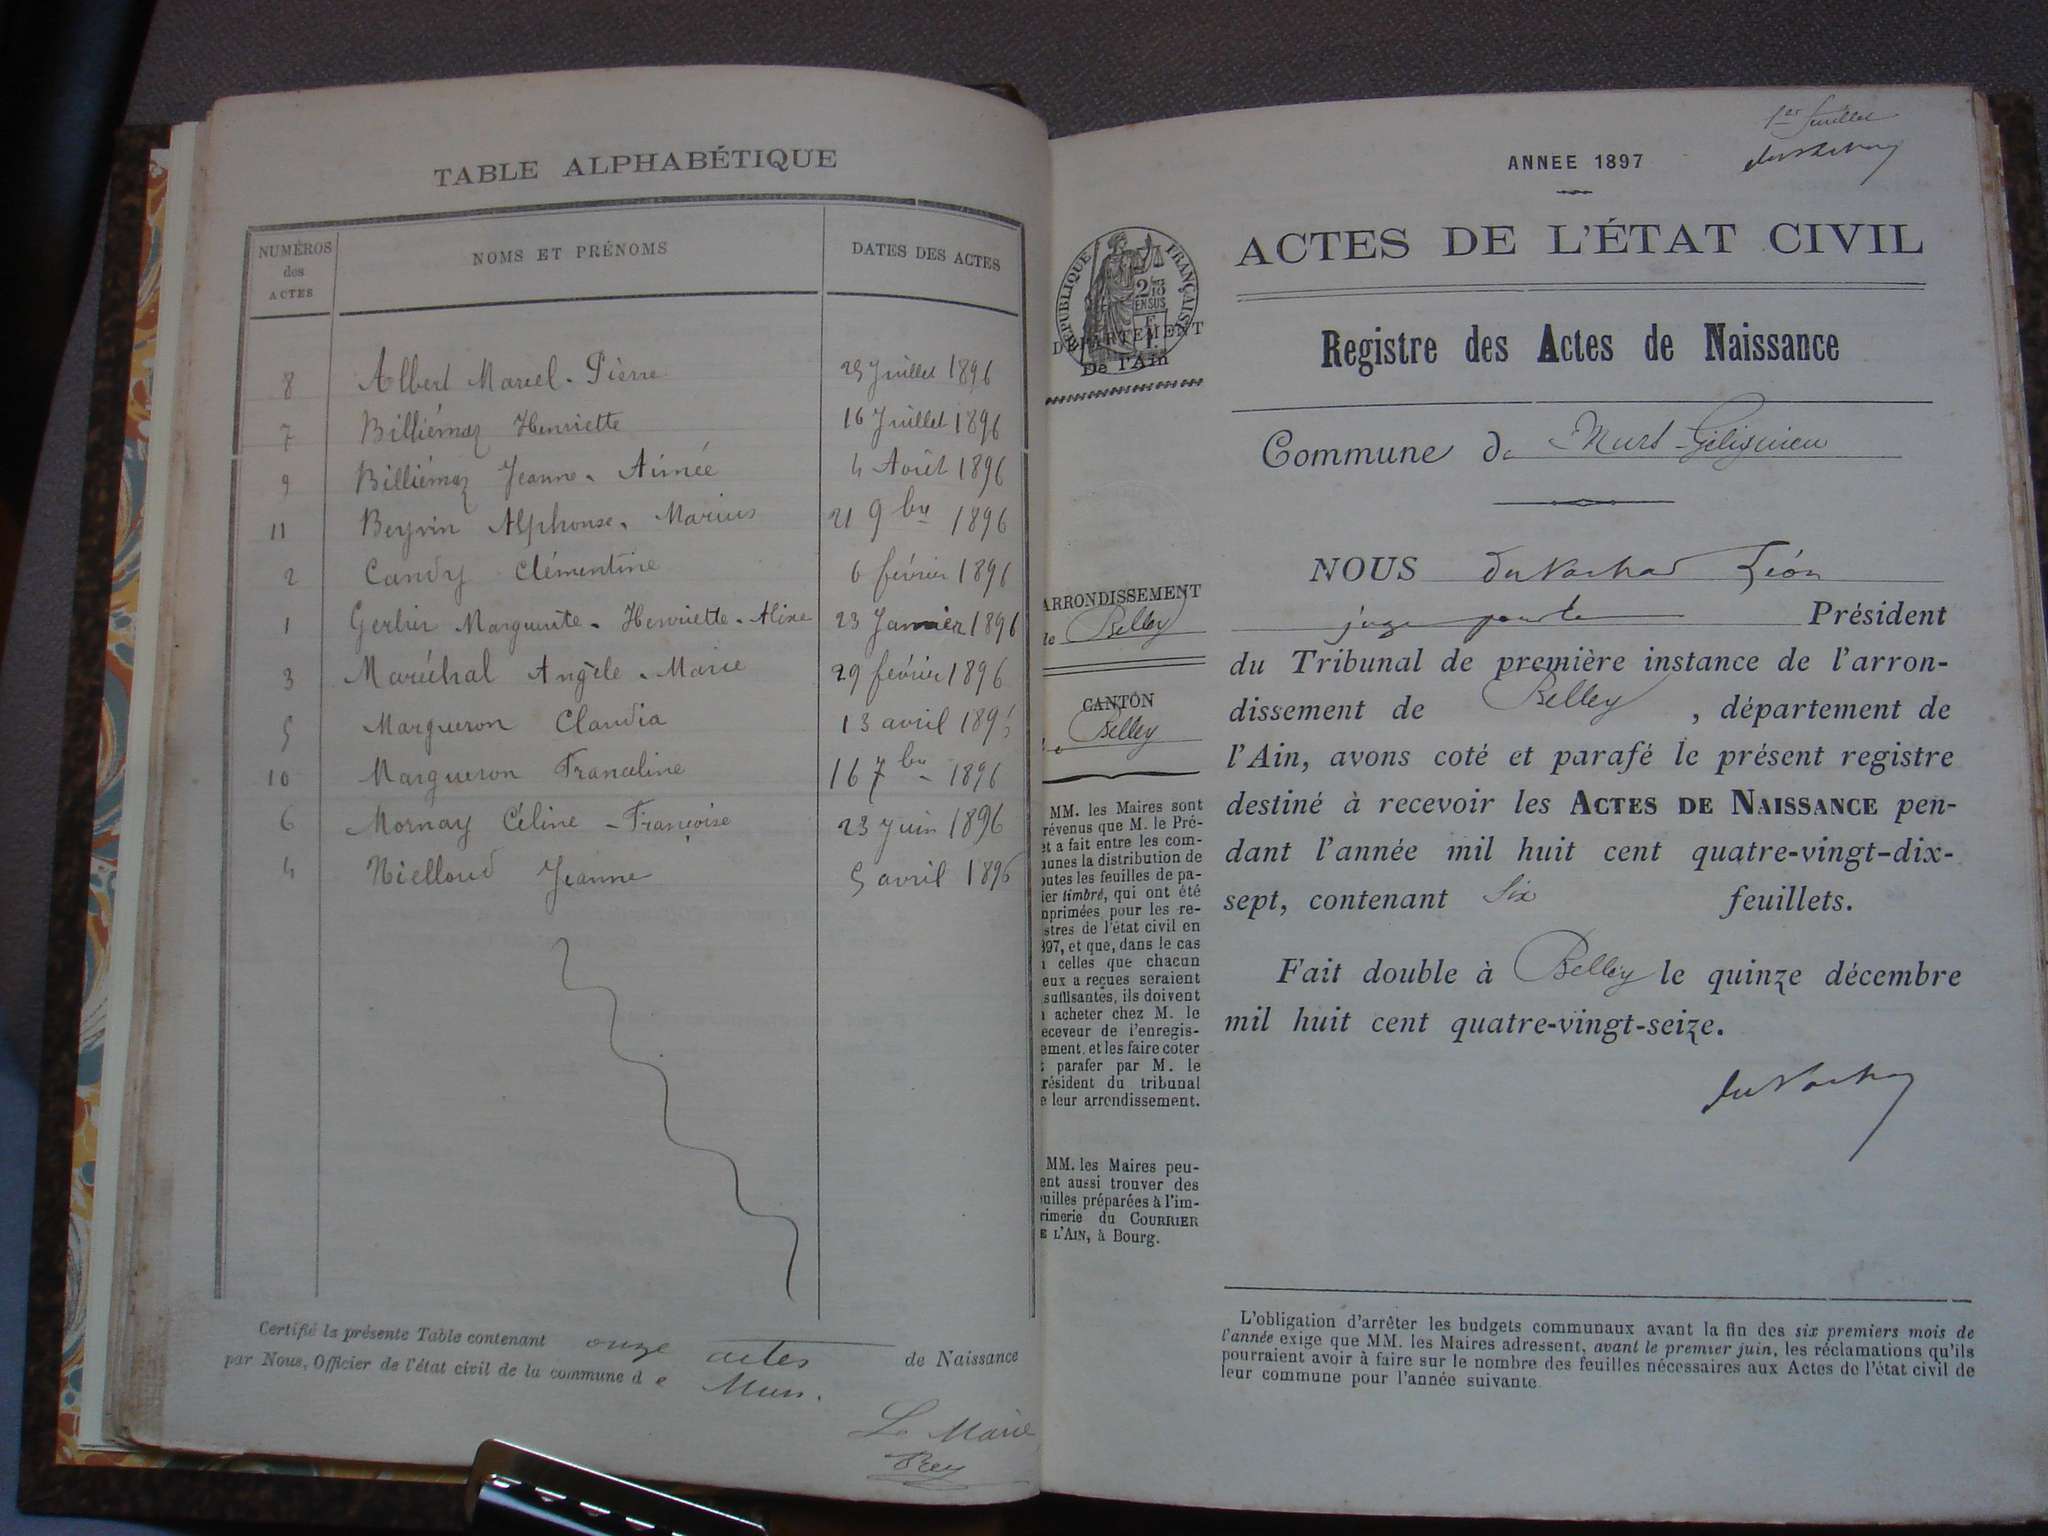 TABLE ALPHABÉTIQUE
NUMÉROS des ACTES
NOMS ET PRÉNOMS
DATES DES ACTES
8 Albert Marcel - Pierre 25 Juillet 1896
7 Billiémaz Henriette 16 Juillet 1896
9 Billiémaz Jeanne - Aimée 4 Août 1896
11 Beyrin Alphonse - Marius 21 9bre 1896
2 Candy Clémentine 6 février 1896
1 Gerbier Marguerite - Henriette - Alixe 23 Janvier 1896
3 Maréchal Angèle - Marie 29 février 1896
5 Margueron Claudia 13 avril 1896
10 Margueron Franceline 16 7bre 1896
6 Mornay Céline - Françoise 23 Juin 1896
4 Nielloud Jeanne 5 avril 1896
Certifié la présente Table contenant onze actes de Naissance
par Nous, Officier de l'état civil de la commune de Murs.
Le Maire
Rey
1er feuillet
ANNEE 1897
ACTES DE L'ÉTAT CIVIL
RÉPUBLIQUE FRANÇAISE
DÉPARTEMENT
De l'Ain
Registre des Actes de Naissance
Commune de Murs-Gélignieu
ARRONDISSEMENT
de Belley
CANTON
Belley
NOUS Léon
juge Président
du Tribunal de première instance de l'arron-
dissement de Belley, département de
l'Ain, avons coté et parafé le présent registre
destiné à recevoir les ACTES DE NAISSANCE pen-
dant l'année mil huit cent quatre-vingt-dix-
sept, contenant Six feuillets.
Fait double à Belley le quinze décembre
mil huit cent quatre-vingt-seize.
MM. les Maires sont
révenus que M. le Pré-
et a fait entre les com-
unes la distribution de
outes les feuilles de pa-
ier timbré, qui ont été
mprimées pour les re-
stres de l'état civil en
897, et que, dans le cas
celles que chacun
eux a reçues seraient
suffisantes, ils doivent
acheter chez M. le
eceveur de l'enregis-
ement, et les faire coter
parafer par M. le
résident du tribunal
e leur arrondissement.
MM. les Maires peu-
ent aussi trouver des
uilles préparées à l'im-
rimerie du COURRIER
E L'AIN, à Bourg.
L'obligation d'arrêter les budgets communaux avant la fin des six premiers mois de
l'année exige que MM. les Maires adressent, avant le premier juin, les réclamations qu'ils
pourraient avoir à faire sur le nombre des feuilles nécessaires aux Actes de l'état civil de
leur commune pour l'année suivante.